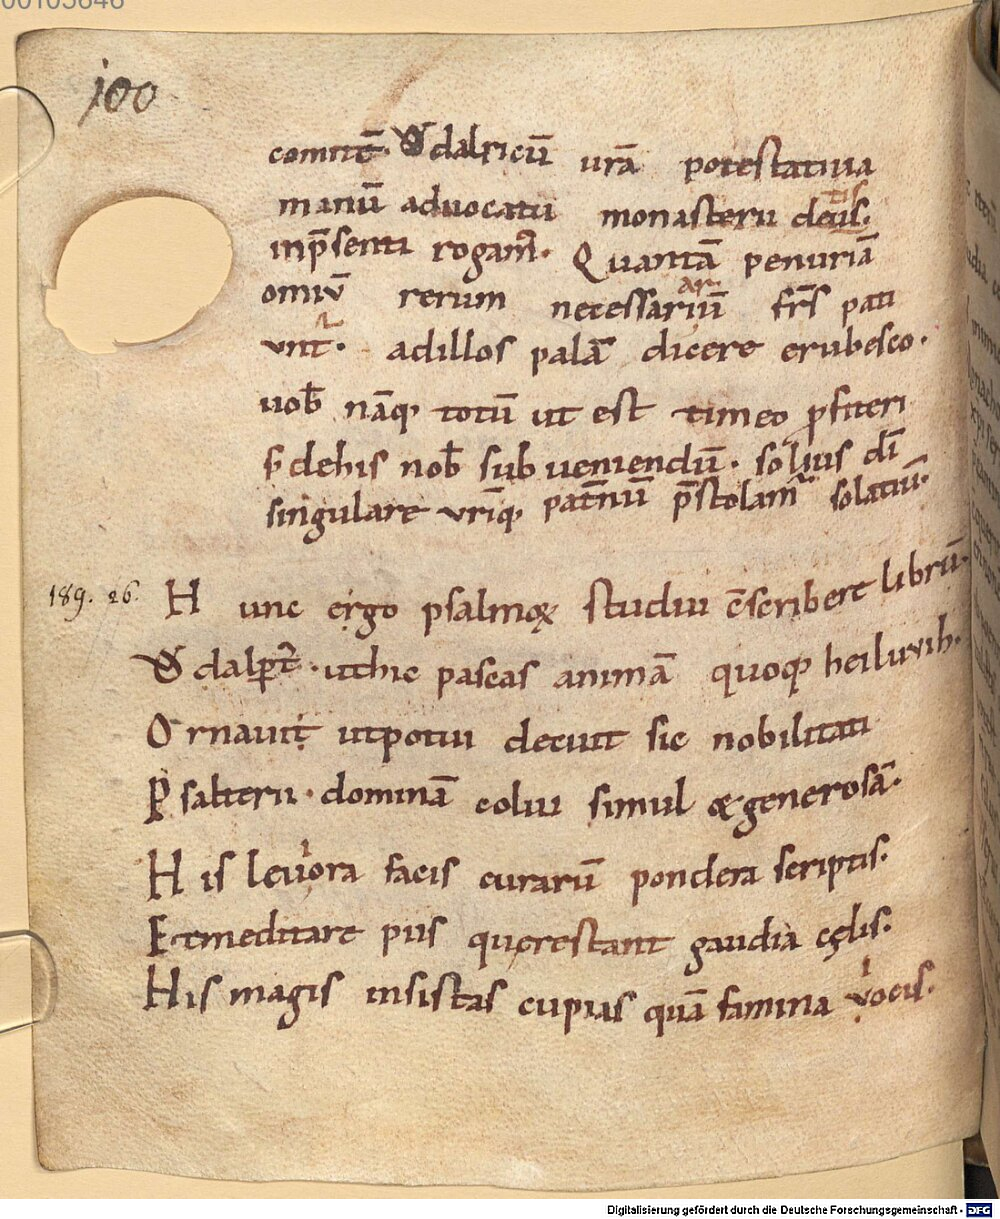 00103646
100
comitē. Ƿdalricū urā potestatiua
manū aduocatū monasterii detis.
inp̄senti rogam᷒. Quantā penuriā
omiū rerum necessariarū fr̄s pati
unt͛. adillos palā dicere erubesco.
uob̄ nāq; totū ut est timeo ꝓfiteri
s; dehis nob̄ subueniendū. solius dī
singulare urīq; pat̄nū p̄stolam᷒ solatiū.
189. 26. Hunc ergo psalmoꝝ studui c̄scribere librū.
Ƿdalꝑt̄. uthic pascas animā quoq;
Ornauit utpotui decuit sic nobilitati
Psalterii. dominā colui simul &generosā.
His leuiora facis curarū pondera scriptis.
Etmeditare pius querestant gaudia cęlis.
His magis insistas cupias quā famina uocis.
Digitalisierung gefördert durch die Deutsche Forschungsgemeinschaft - DFG